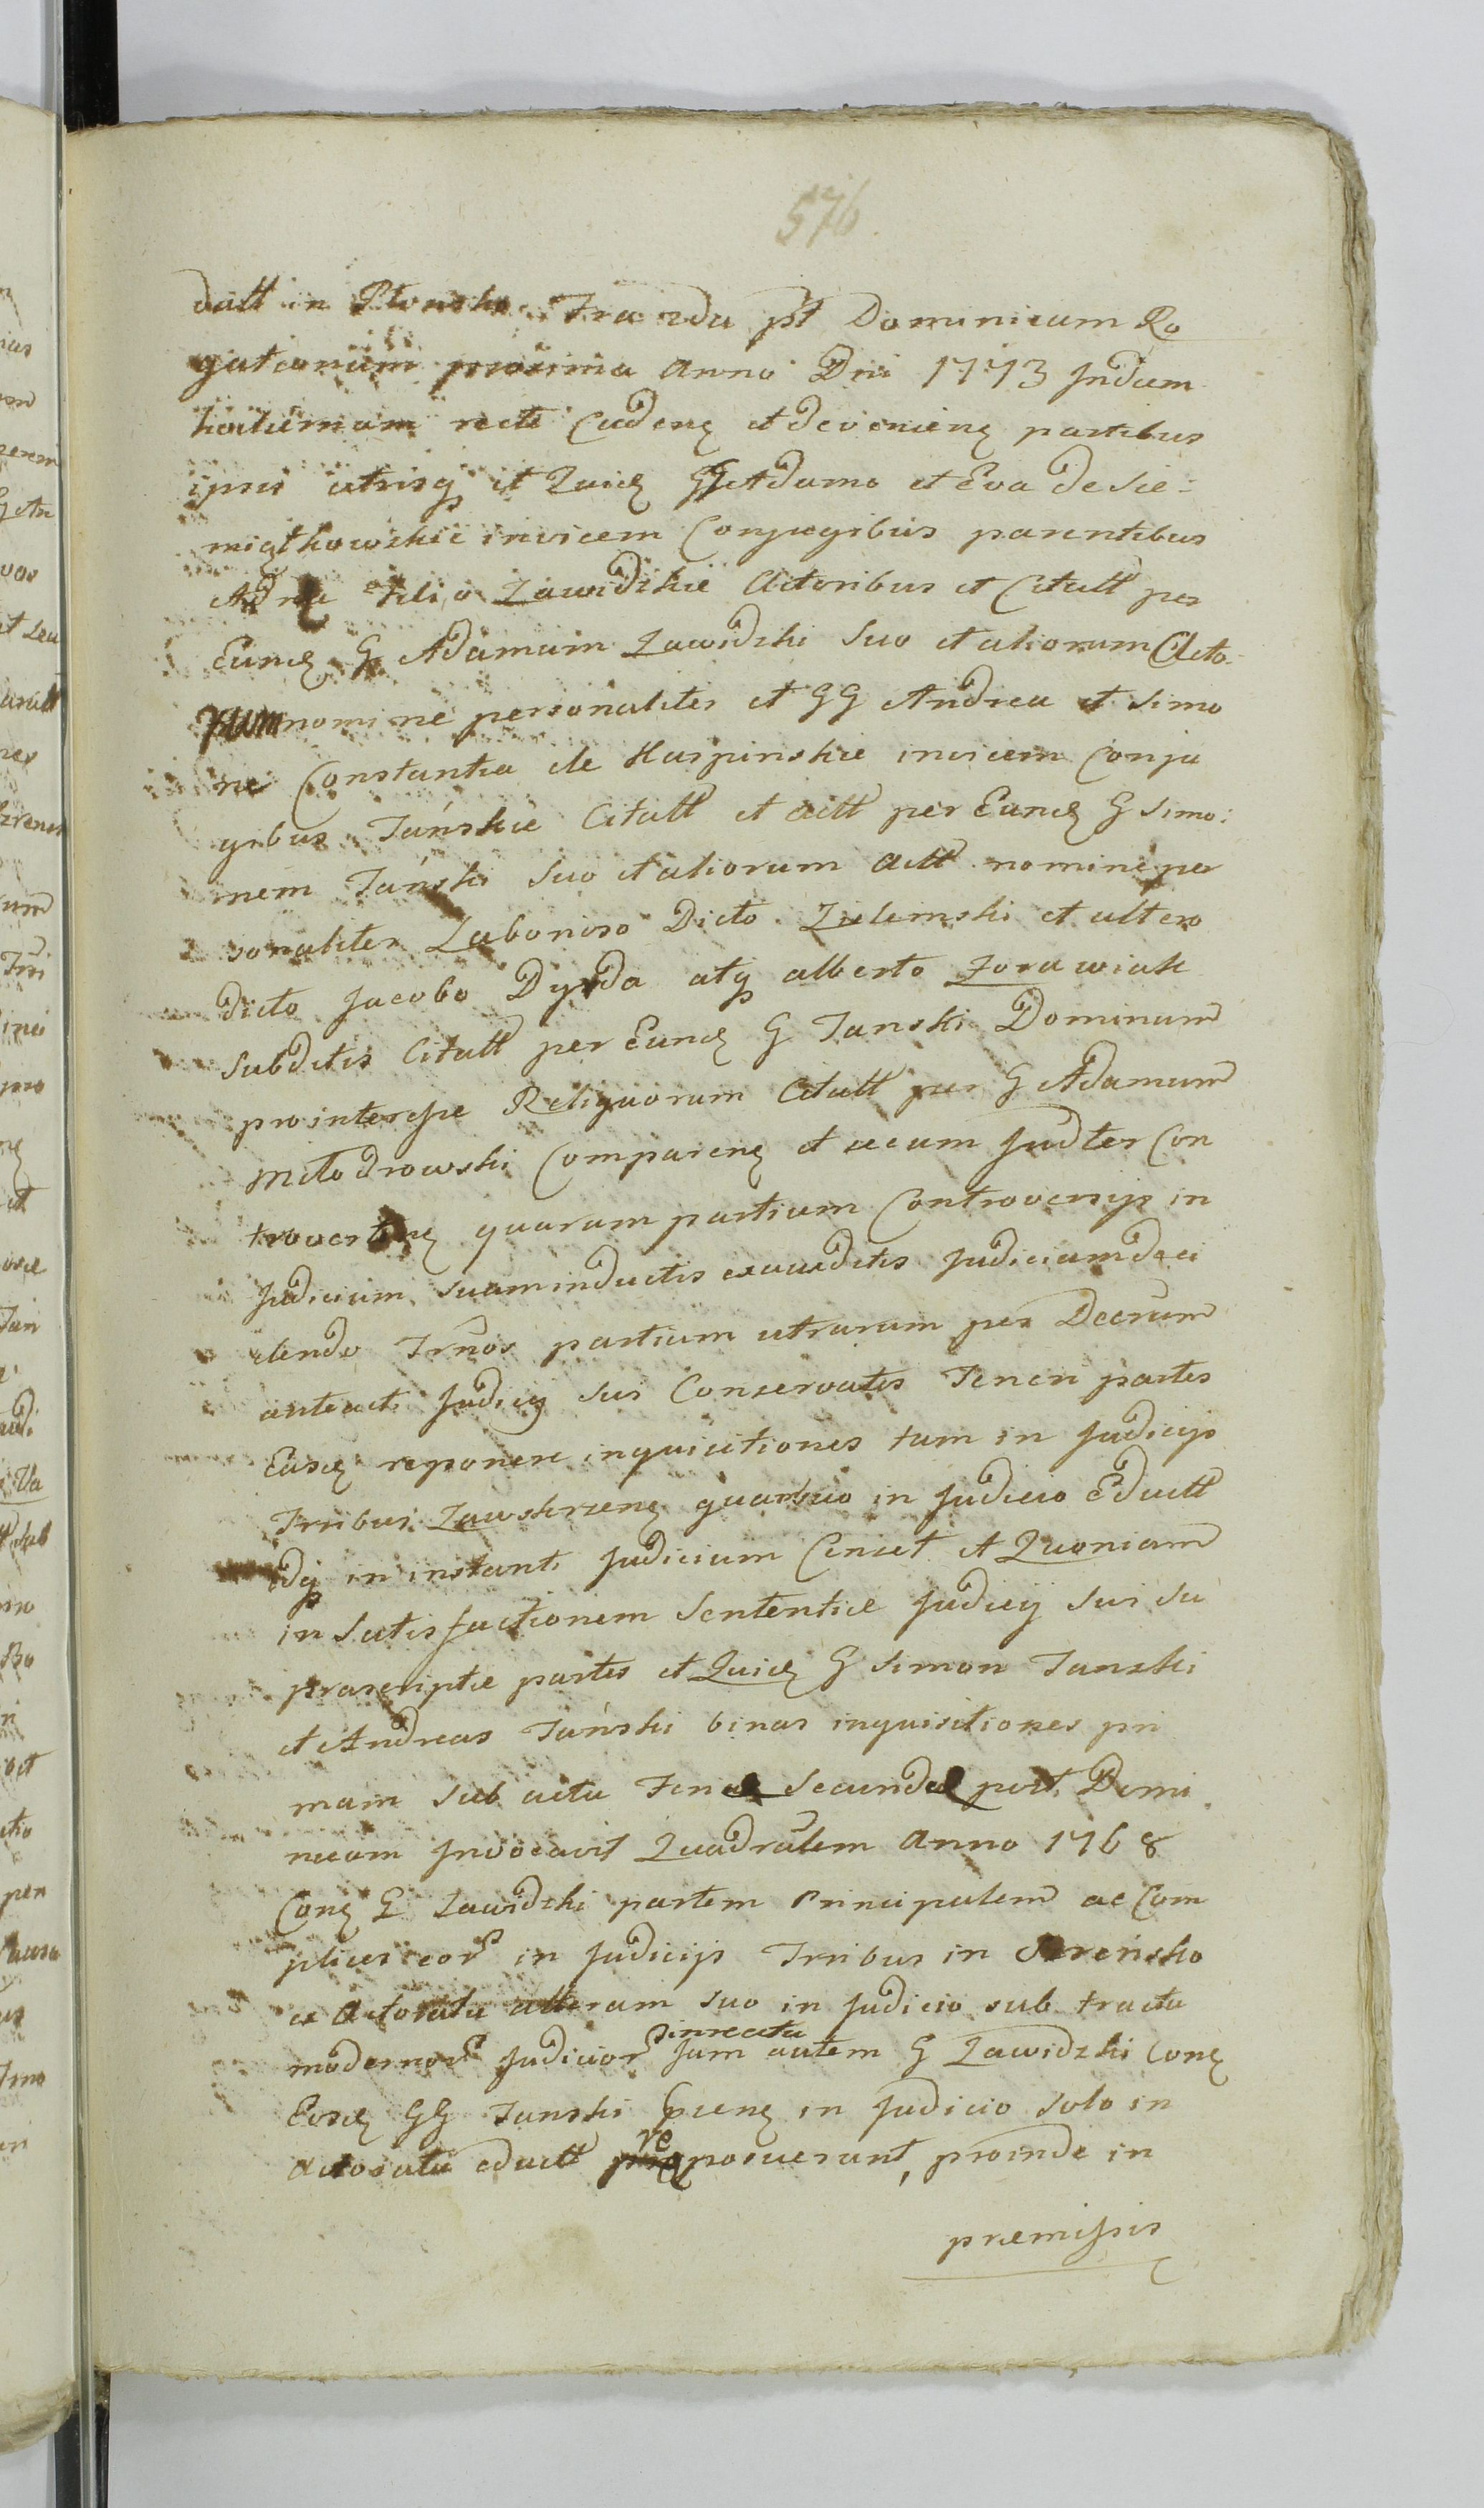 576.
datt in Płonsko Fra 2da pt Dominicam Ro
gationum proxima Anno Dni 1773 Judum
hodiernum recte Cadenę et devenienę partibus
ipsis utrisq et Quidę GG Adamo et Eva de Sie:
miątkowskie invicem Conjugibus parentibus
filio Zawidzkie Actoribus et Citatt per
Eundę G Adamum Zawidzki Suo et aliorum Acto
rum nomine personaliter et GG Andrea et Simo
ne Constantia de Karpinskie invicem Conju
gibus Tańskie Citatt et actt per Eundę G Simo:
nem Tański Suo et aliorum Actt nomine per
sonaliter Laborioso Dicto Zielinski et altero
dicto Jacobo Dyrda atq alberto Zorawiak
Subditis Citatt per Eundę G Tanski Dominum
pro interesse Reliquorum Citatt per G Adamum
Młodzowski Comparenę et secum Judter Con
trovertenę quarum partium Controversys in
Judicium Suum inductis exauditis Judicium deci
dendo Trnos partium utrarum per Decrum
anteacti Judicy Sui Conservatis Teneri partes
Easdę reponere inquisitiones tum in Judicijs
Trribus Zawskrzenę quam suo in Judicio Eductt
idq in instanti Judicium Censet et Quoniam
in Satisfactionem Sententiæ Judicij Sui Su
prascriptæ partes et Quidę G Simon Tanski
et Andreas Tański binas inquisitiones pri
mam sub actu Feriæ Secundæ post Domi
nicam Invocavit Quadralem Anno 1768
Conę G Zawidzki partem Principalem ac Com
plices eor in Judicijs Trribus in Srensko
ex Actoratu alteram suo in Judicio sub tractu
modernor Judicior sinreatu Jam autem G Zawidzki Conę
Eosdę GG Tanski in Judicio solo in
Actoratu eductt reposuerunt, proinde in
præmissis